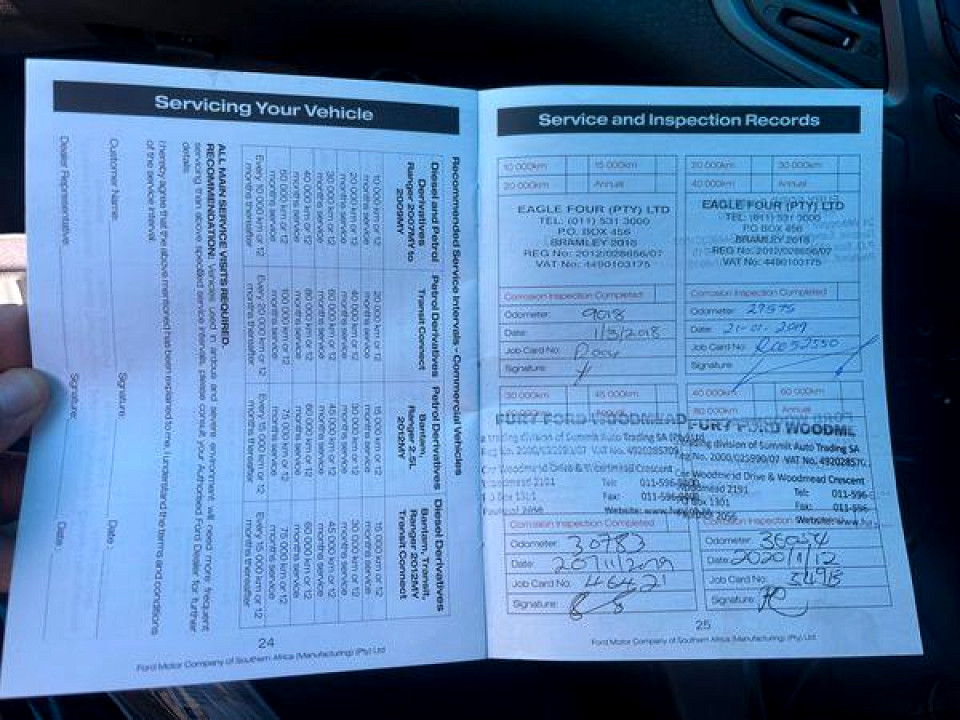 Servicing Your Vehicle
Recommended Service Intervals - Commercial Vehicles
Diesel and Petrol Derivatives Ranger 2007MY to 2009MY
Petrol Derivatives Transit Connect
Petrol Derivatives Bantam, Ranger 2.5L 2012MY
Diesel Derivatives Bantam, Transit, Ranger 2012MY Transit Connect
10 000 km or 12 months service
20 000 km or 12 months service
15 000 km or 12 months service
15 000 km or 12 months service
20 000 km or 12 months service
40 000 km or 12 months service
30 000 km or 12 months service
30 000 km or 12 months service
30 000 km or 12 months service
60 000 km or 12 months service
45 000 km or 12 months service
45 000 km or 12 months service
40 000 km or 12 months service
80 000 km or 12 months service
60 000 km or 12 months service
60 000 km or 12 months service
50 000 km or 12 months service
100 000 km or 12 months service
75 000 km or 12 months service
75 000 km or 12 months service
Every 10 000 km or 12 months thereafter
Every 20 000 km or 12 months thereafter
Every 15 000 km or 12 months thereafter
Every 15 000 km or 12 months thereafter
ALL MAIN SERVICE VISITS REQUIRED.
RECOMMENDATION: Vehicles used in ardous and severe environment will need more frequent
servicing than above specified service intervals, please consult your Authorised Ford Dealer for further
details.
I hereby agree that the above mentioned has been explained to me, I understand the terms and conditions
of the service interval.
Customer Name: Signature: Date:
Dealer Representative: Signature: Date:
24
Ford Motor Company of Southern Africa (Manufacturing) (Pty) Ltd
Service and Inspection Records
10 000km 15 000km
20 000km Annual
EAGLE FOUR (PTY) LTD
TEL: (011) 531 3000
P.O. BOX 456
BRAMLEY 2018
REG No: 2012/028656/07
VAT No: 4490103175
Corrosion Inspection Completed
Odometer: 9018
Date: 1/3/2018
Job Card No:
Signature:
20 000km 30 000km
40 000km Annual
EAGLE FOUR (PTY) LTD
TEL: (011) 531 3000
P.O BOX 456
BRAMLEY 2018
REG No: 2012/028656/07
VAT No: 4490103175
Corrosion Inspection Completed
Odometer: 27575
Date: 21-01-2019
Job Card No:
Signature:
30 000km 45 000km
Annual
FURY FORD WOODMEAD
a trading division of Summit Auto Trading SA (Pty) Ltd
Woodmead Drive & Crescent
2191 Tel: 011-596
Box 1301 Fax: 011-596
Website: www.
Corrosion Inspection Completed
Odometer: 30783
Date: 2019
Job Card No: 46421
Signature:
40 000km 60 000km
80 000km Annual
FURY FORD WOODME
division of Summit Auto Trading SA
No. 2000/025990/07 VAT No.
Woodmead Drive & Woodmead Crescent
Woodmead 2191 Tel: 011-596
Box 1301 Fax: 011-596
Website: www.
Corrosion Inspection
Odometer: 36054
Date: 2020/11/12
Job Card No:
Signature:
25
Ford Motor Company of Southern Africa (Manufacturing) (Pty) Ltd